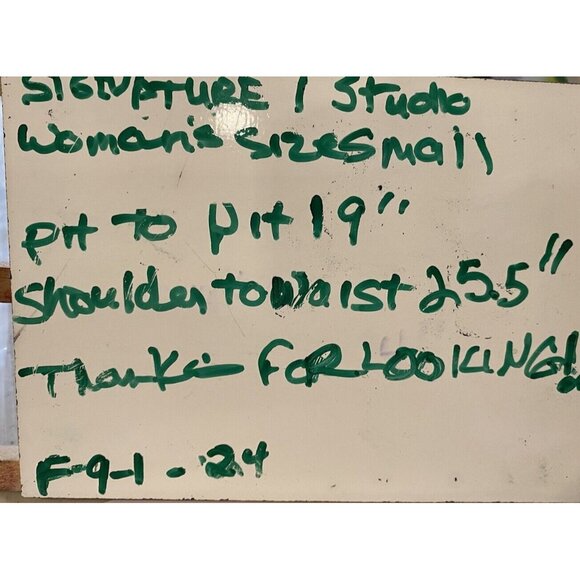 SIGNATURE / Studio
Woman's Size Small
pit to pit 19"
Shoulder to Waist 25.5"
Thanks FOR LOOKING!
F-9-1-24